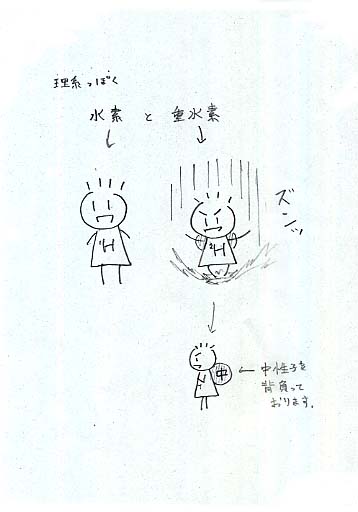 理系っぽく
水素 と 重水素
¹H
²H
ズンッ
H
中
中性子を
背負って
おります。